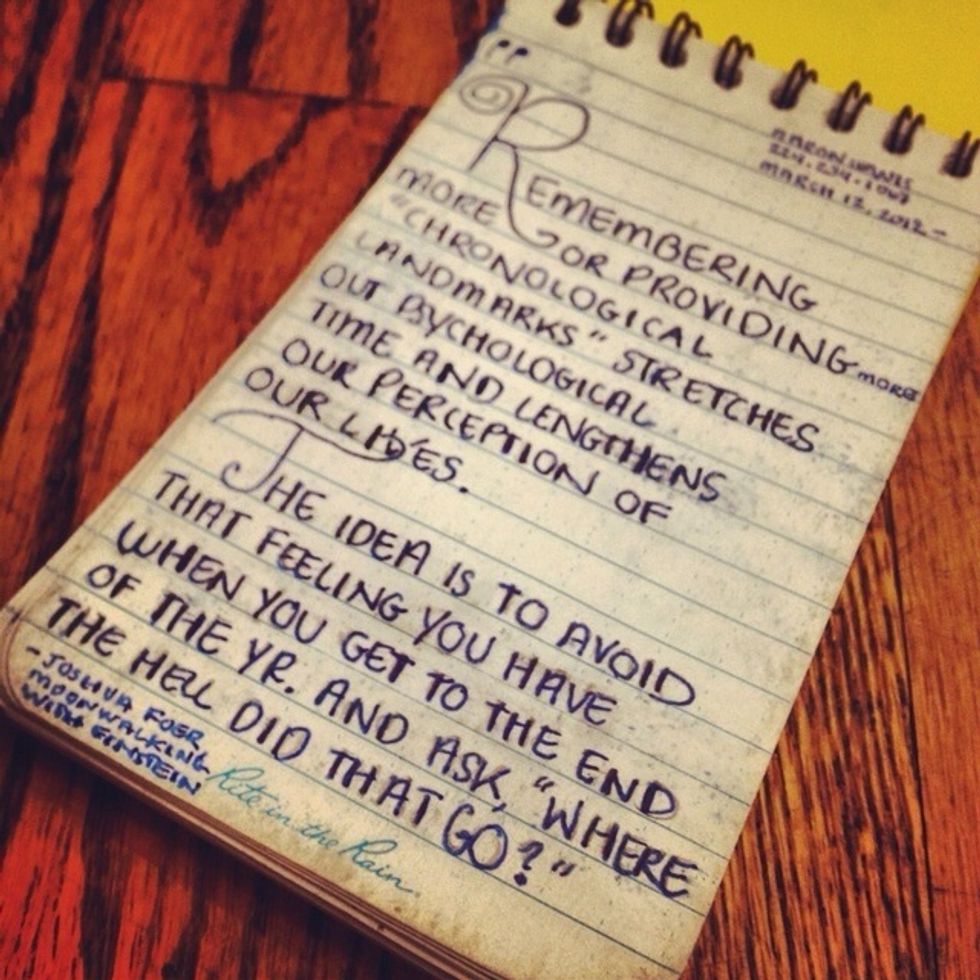 AARON
MARCH 12, 2012 -
"
REMEMBERING
MORE OR PROVIDING MORE
"CHRONOLOGICAL
LANDMARKS" STRETCHES
OUT PSYCHOLOGICAL
TIME AND LENGTHENS
OUR PERCEPTION OF
OUR LIVES.
THE IDEA IS TO AVOID
THAT FEELING YOU HAVE
WHEN YOU GET TO THE END
OF THE YR. AND ASK, "WHERE
THE HELL DID THAT GO?"
- JOSHUA FOER
MOONWALKING
WITH EINSTEIN
Rite in the Rain.